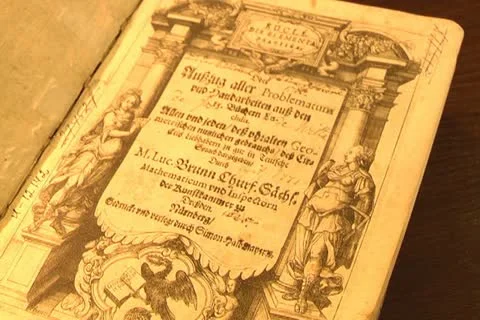 EUCLI
DIS ELEMENTA
PRACTICA.
Oder
Außzug aller Problematum
und Handarbeiten auß den
15. Büchern Eu-
clidis.
Allen und jeden/ deß uhralten Geo-
metrischen nützlichen gebrauchs/ deß Circ
kels liebhabern zu gut in Teutsche
Sprach
Durch
M. Luc. Brunn Churf. Sächs.
Mathematicum und Inspectorn
der Kunstkammer zu
Dreßden
Nürnberg/
Gedruckt und verlegt durch Simon Halbmayern.